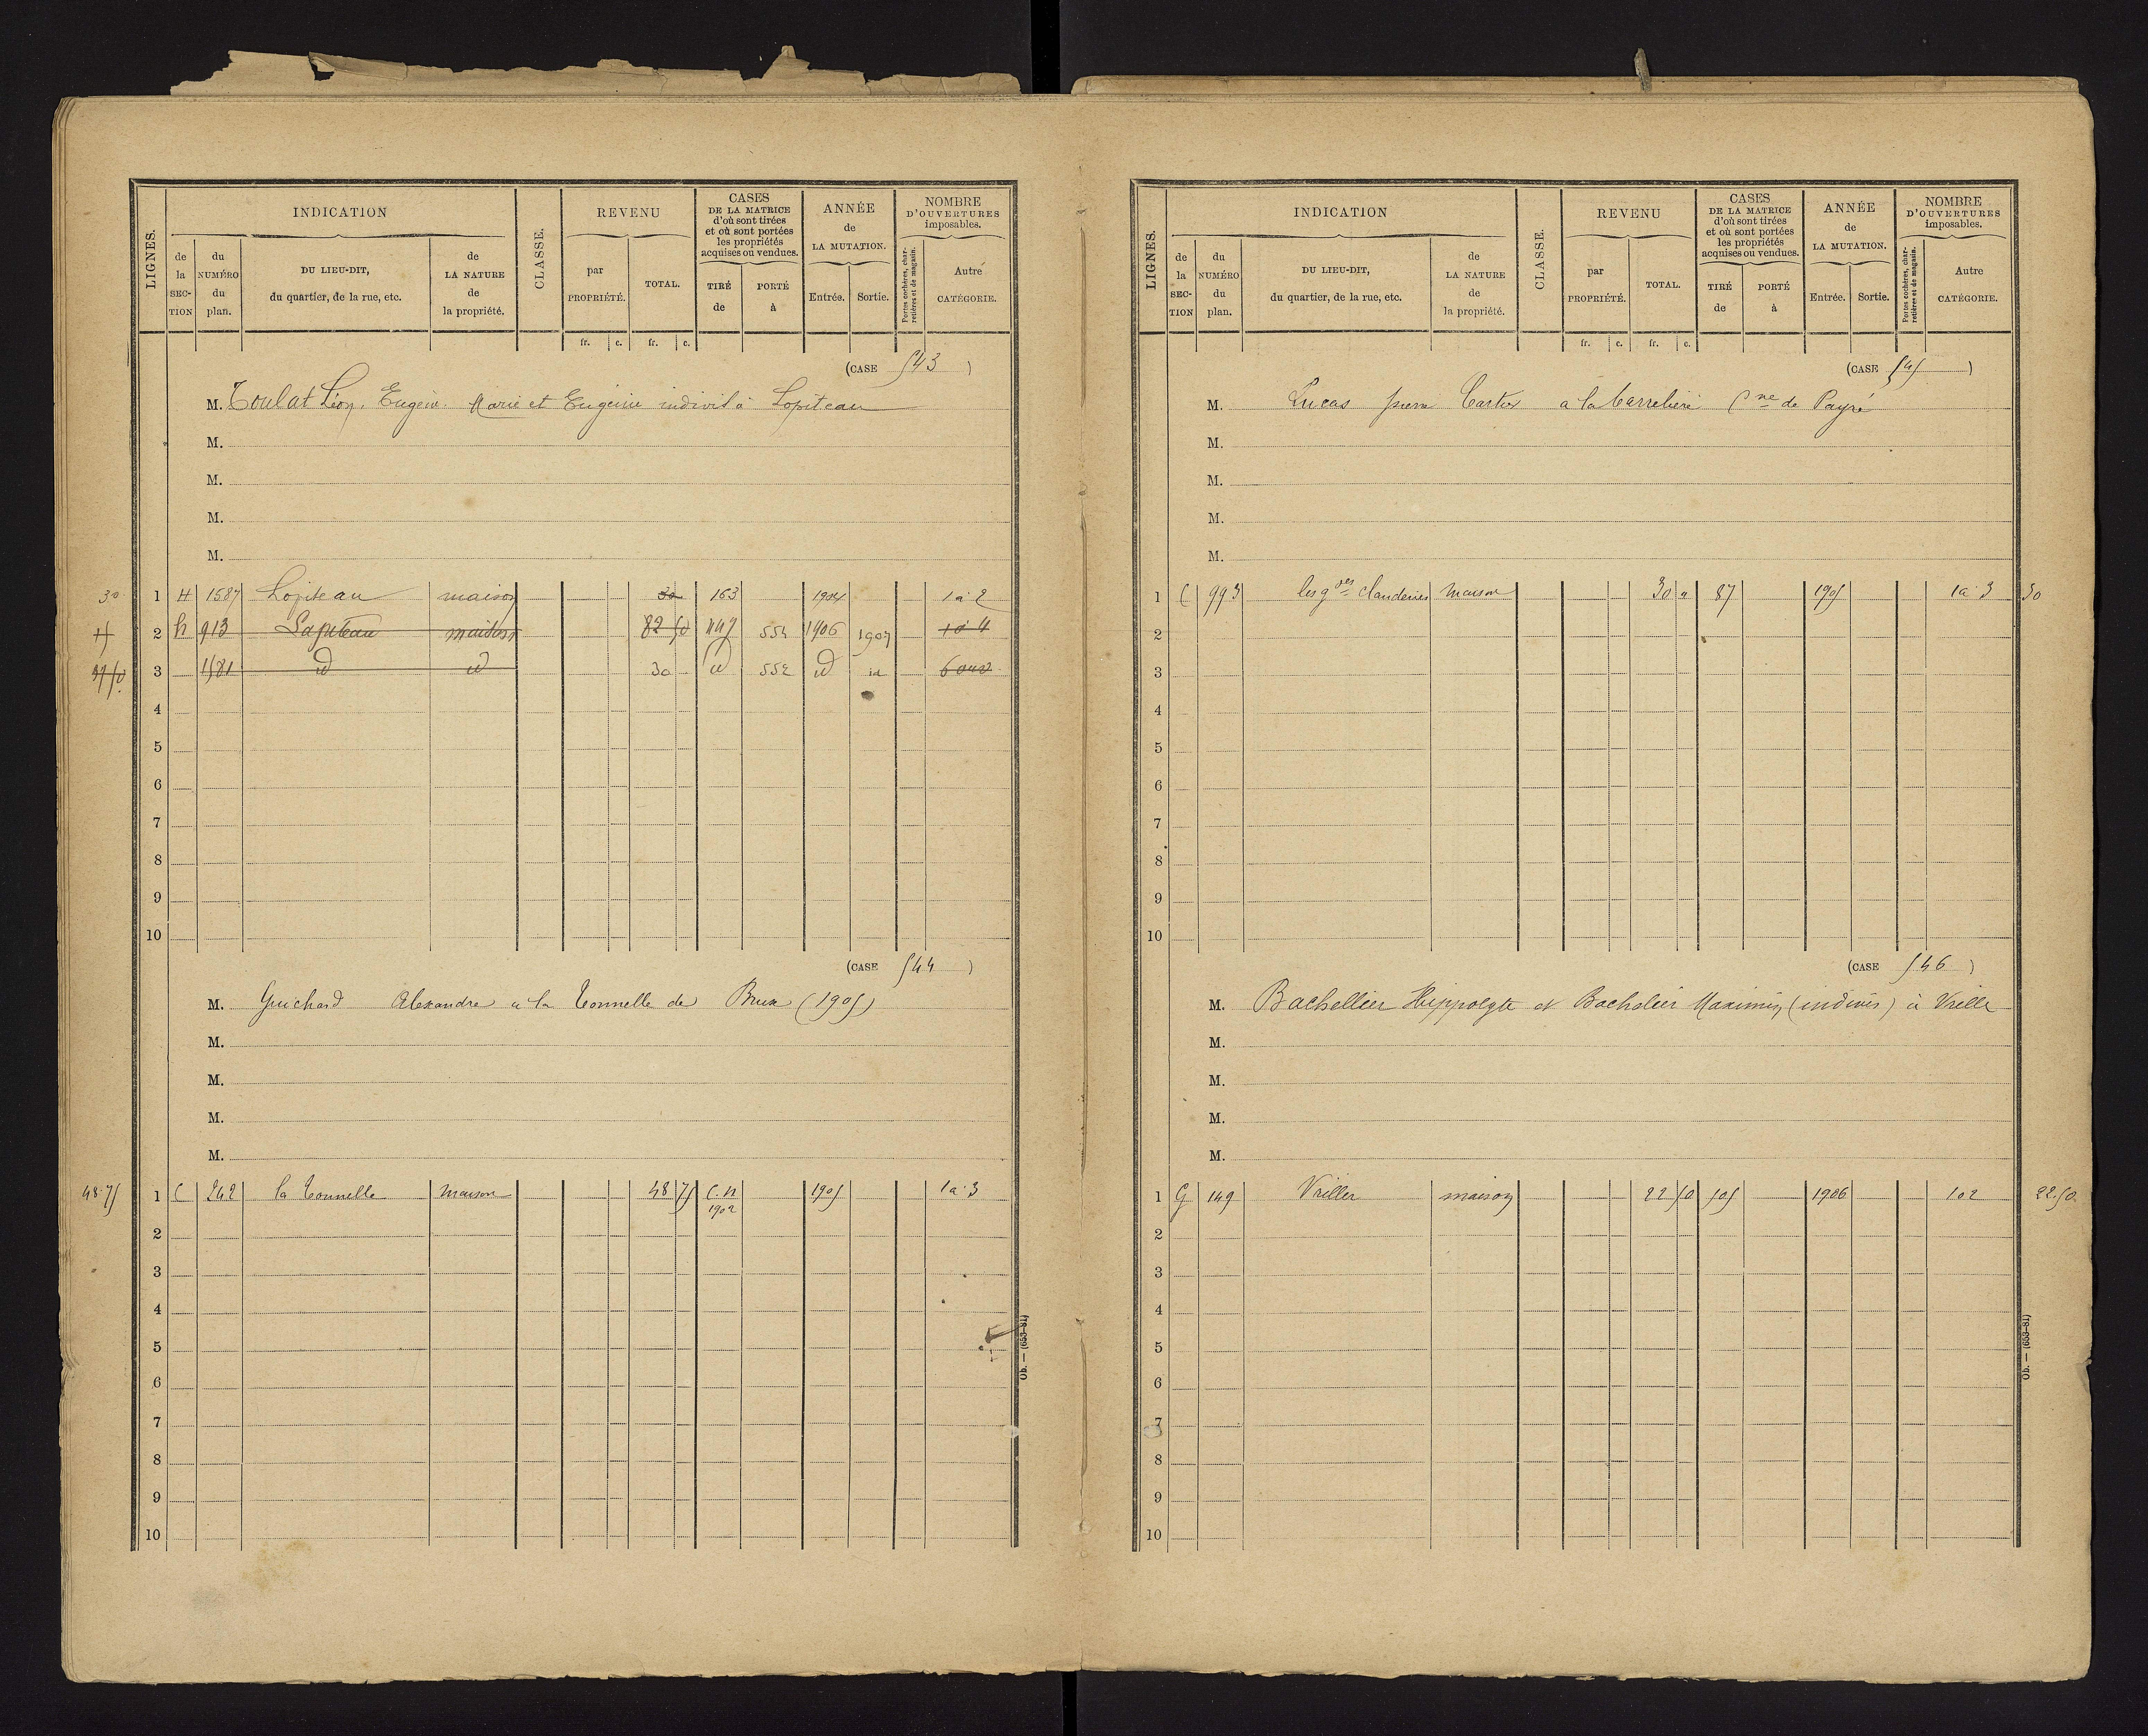 LIGNES.
INDICATION
de la SECTION
du NUMÉRO du plan.
DU LIEU-DIT, du quartier, de la rue, etc.
de LA NATURE de la propriété.
CLASSE.
REVENU
par PROPRIÉTÉ.
TOTAL.
CASES DE LA MATRICE d'où sont tirées et où sont portées les propriétés acquises ou vendues.
TIRÉ de
PORTÉ à
ANNÉE de LA MUTATION.
Entrée.
Sortie.
NOMBRE D'OUVERTURES imposables.
Portes cochères, charretières et de magasin.
Autre CATÉGORIE.
fr. c. fr. c.
(CASE 543)
M. Toulat Léon, Eugène, Marie et Eugénie indivis à Lopiteau
M.
M.
M.
M.
30 1 H 1587 Lopiteau maison 30 163 1904 1 à 2
2 h 913 Lapiteau maison 82 50 447 554 1906 1907 1 à 4
3 1581 id id 30 id 552 id id 6 ouv
4
5
6
7
8
9
10
(CASE 544)
M. Guichard Alexandre à la Tonnelle de Brux (1905)
M.
M.
M.
M.
48.75 1 C 242 la Tonnelle maison 48 75 C.N 1902 1905 1 à 3
2
3
4
5
6
7
8
9
10
Ob. — (653-81)
LIGNES.
INDICATION
de la SECTION
du NUMÉRO du plan.
DU LIEU-DIT, du quartier, de la rue, etc.
de LA NATURE de la propriété.
CLASSE.
REVENU
par PROPRIÉTÉ.
TOTAL.
CASES DE LA MATRICE d'où sont tirées et où sont portées les propriétés acquises ou vendues.
TIRÉ de
PORTÉ à
ANNÉE de LA MUTATION.
Entrée.
Sortie.
NOMBRE D'OUVERTURES imposables.
Portes cochères, charretières et de magasin.
Autre CATÉGORIE.
fr. c. fr. c.
(CASE 545)
M. Lucas pierre Cartier a la Carreliere Cne de Payré
M.
M.
M.
M.
1 C 993 les gdes Clauderies Maison 30 " 87 1905 1 à 3 30
2
3
4
5
6
7
8
9
10
(CASE 546)
M. Bachellier Hippolyte et Bachelier Maximin (indivis) à Vriller
M.
M.
M.
M.
1 G 149 Vriller maison 22 50 505 1906 1 0 2 22.50
2
3
4
5
6
7
8
9
10
Ob. — (653-81)